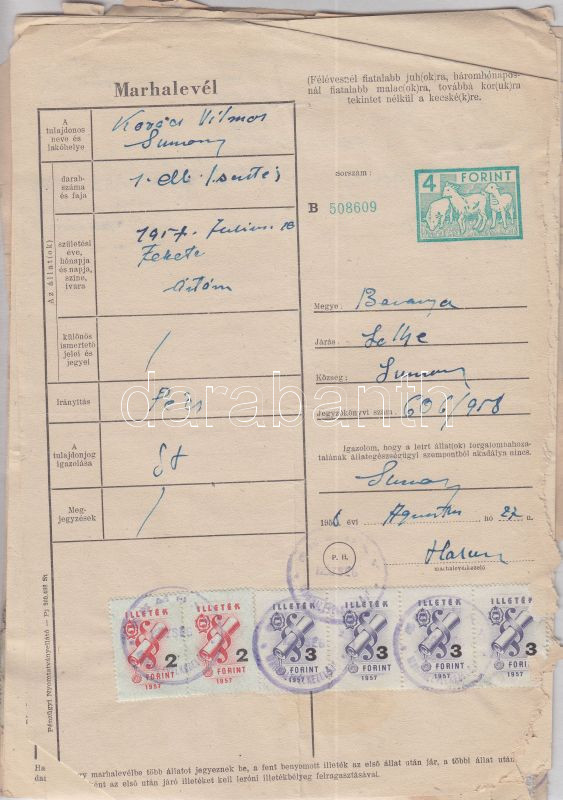 Marhalevél
(Félévesnél fiatalabb juh(ok)ra, háromhónapos-
nál fiatalabb malac(ok)ra, továbbá kor(uk)ra
tekintet nélkül a kecské(k)re.
A
tulajdonos
neve és
lakóhelye
Kovács Vilmos
Sumony
darab-
száma
és faja
1. db sertés
Az állat(ok)
születési
éve,
hónapja
és napja,
színe,
ivara
Fekete
Ártány
különös
ismertető
jelei és
jegyei
Irányítás
Pécs
A
tulajdonjog
igazolása
Meg-
jegyzések
Sorszám:
B 508609
4 FORINT
Megye: Baranya
Járás:
Község: Sumony
Jegyzőkönyvi szám: 606/958
Igazolom, hogy a leírt állat(ok) forgalombahoza-
talának állategészségügyi szempontból akadálya nincs.
Sumony
évi Agusztus hó 27 n.
P. H.
marhalevélkezelő
ILLETÉK ILLETÉK ILLETÉK ILLETÉK ILLETÉK ILLETÉK
2 2 3 3 3 3
FORINT FORINT FORINT FORINT FORINT FORINT
1957 1957 1957 1957 1957 1957
Pénzügyi Nyomtatványellátó
darabanth
Ha egy marhalevélbe több állatot jegyeznek be, a fent benyomott illeték az első állat után jár, a többi állat után
ként az első állat után járó illetéket kell leróni illetékbélyeg felragasztásával.